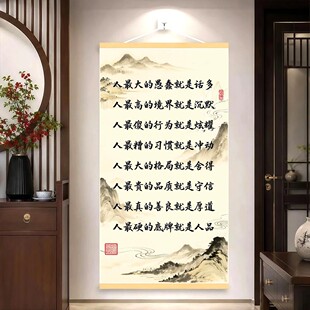 人最大的愚蠢就是话多
人最高的境界就是沉默
人最傻的行为就是炫耀
人最糟的习惯就是冲动
人最大的格局就是舍得
人最贵的品质就是守信
人最真的善良就是厚道
人最硬的底牌就是人品